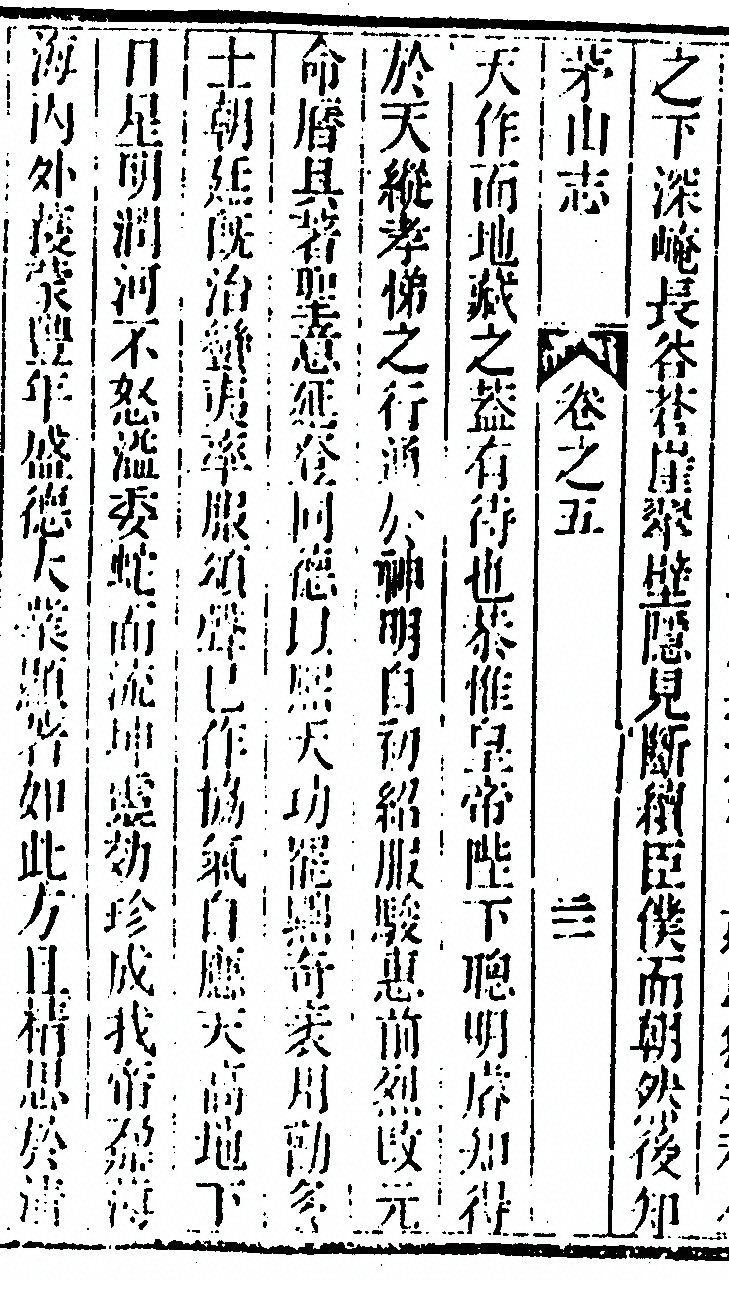 之下深崦長谷蒼崖翠壁隱見斷續臣僕而朝然後知
茅山志 卷之五 三
天作而地藏之蓋有待也恭惟皇帝陛下聰明睿知得
於天縱孝悌之行通公神明自初紹服駿惠前烈改元
命曆具著聖意延登同德以熙天功罷黜奇衺用勸多
士朝廷既治蠻夷率服頌聲已作協氣自應天高地下
日星明潤河不怒溢委蛇而流坤靈効珍成我帝鼐薄
海內外接葉豊年盛德大業顯著如此方且精思於清